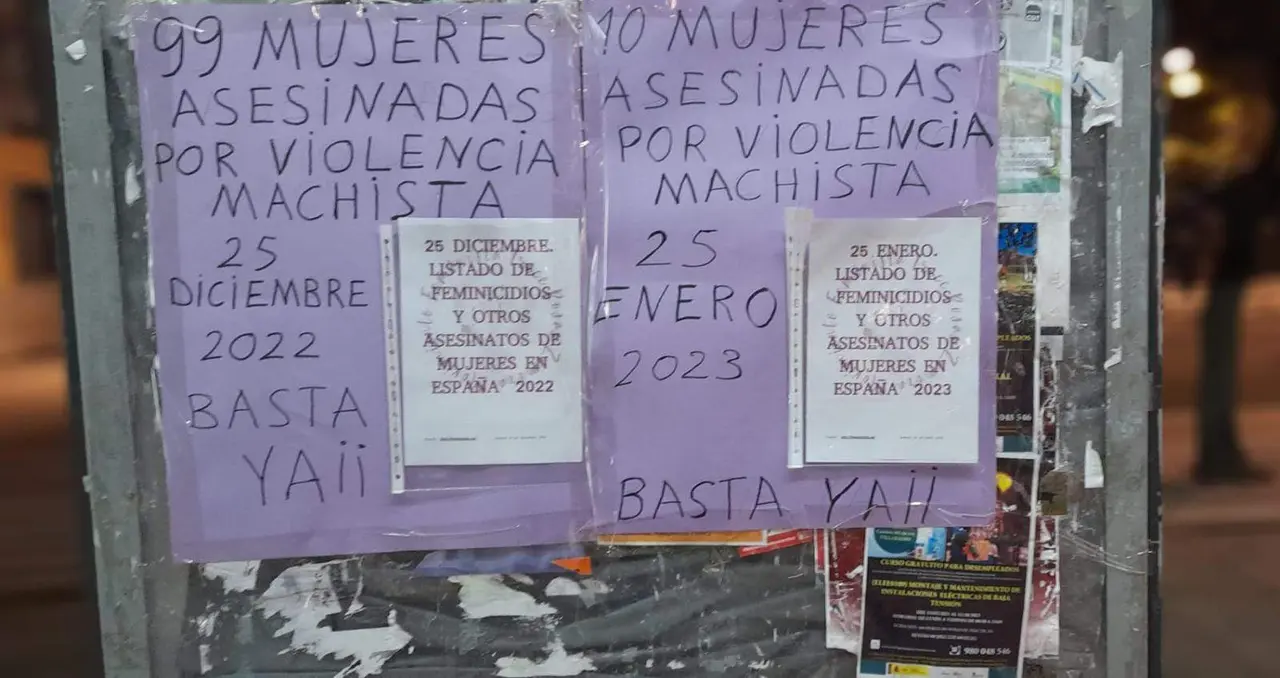 99 MUJERES
ASESINADAS
POR VIOLENCIA
MACHISTA
25
DICIEMBRE
2022
BASTA
YA¡¡
25 DICIEMBRE.
LISTADO DE
FEMINICIDIOS
Y OTROS
ASESINATOS DE
MUJERES EN
ESPAÑA 2022
10 MUJERES
ASESINADAS
POR VIOLENCIA
MACHISTA
25
ENERO
2023
BASTA YA¡¡
25 ENERO.
LISTADO DE
FEMINICIDIOS
Y OTROS
ASESINATOS DE
MUJERES EN
ESPAÑA 2023
048 546
CURSO GRATUITO PARA DESEMPLEADOS
MONTAJE Y MANTENIMIENTO DE
INSTALACIONES ELÉCTRICAS DE BAJA
TENSIÓN
980 048 546